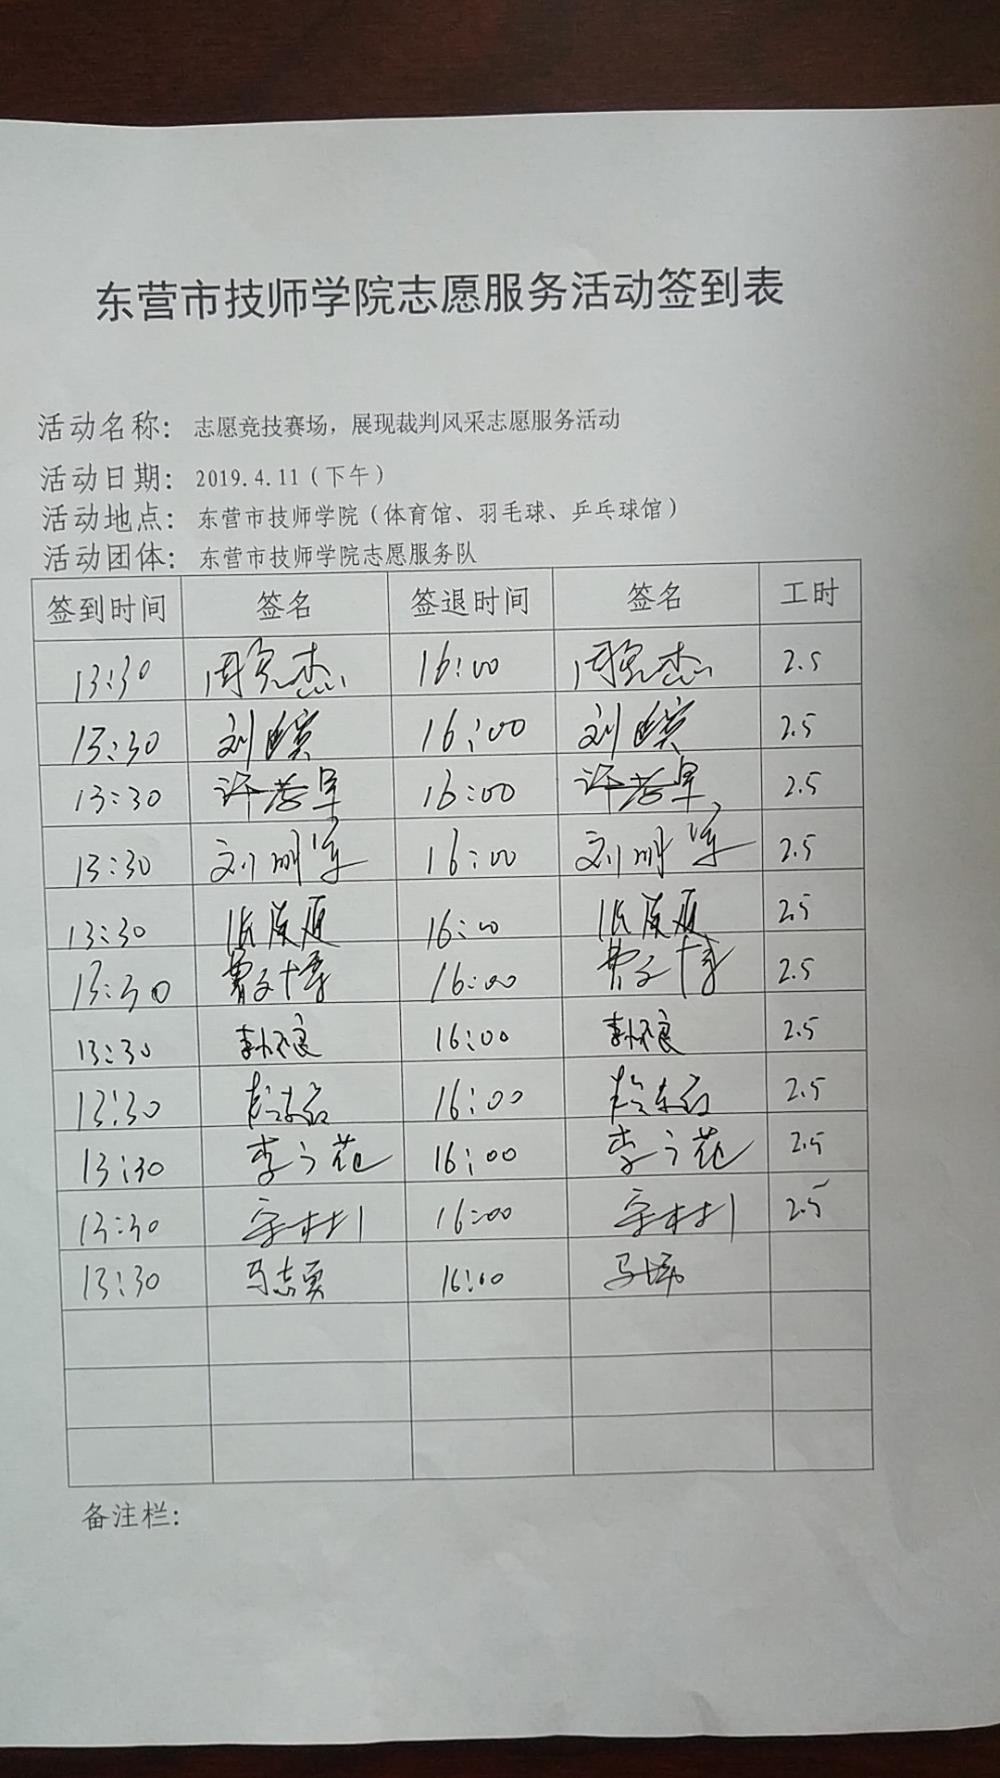 东营市技师学院志愿服务活动签到表
活动名称：志愿竞技赛场，展现裁判风采志愿服务活动
活动日期：2019.4.11（下午）
活动地点：东营市技师学院（体育馆、羽毛球、乒乓球馆）
活动团体：东营市技师学院志愿服务队
签到时间 签名 签退时间 签名 工时
13:30 16:00 2.5
13:30 刘 16:00 刘 2.5
13:30 许 16:00 许 2.5
13:30 刘明军 16:00 刘明军 2.5
13:30 张 16:00 张 2.5
13:30 曹 16:00 曹 2.5
13:30 李 16:00 李 2.5
13:30 16:00 2.5
13:30 李 花 16:00 李 花 2.5
13:30 16:00 2.5
13:30 马志勇 16:00 马
备注栏：